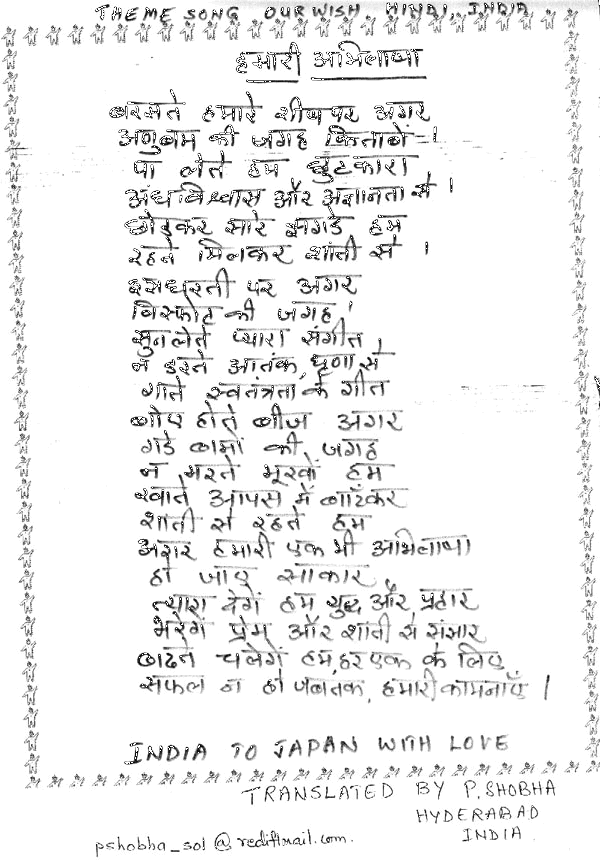 THEME SONG OUR WISH HINDI, INDIA
हमारी अभिलाषा
बरसते हमारे शीष पर अगर
अणुबम की जगह किताबें ।
पा लेते हम छुटकारा
अंधविश्वास और अज्ञानता से ।
छोड़कर सारे झगडे हम
रहते मिलकर शांती से ।
इस धरती पर अगर
विस्फोट की जगह ।
सुन लेते प्यारा संगीत ।
न डरते आतंक, घृणा से
गाते स्वतंत्रता के गीत
बोए होते बीज अगर
गडे बामों की जगह
न मरते भूखों हम
खाते आपस में बाँटकर
शांती से रहते हम
अगर हमारी एक भी अभिलाषा
हो जाए साकार
त्याग देगें हम युद्ध और प्रहार
भरेगें प्रेम और शांती से संसार
बाढते चलेगें हम, हर एक के लिए
सफल न हो जबतक, हमारी कामनाएँ ।
INDIA TO JAPAN WITH LOVE
TRANSLATED BY P. SHOBHA
HYDERABAD
INDIA
pshobha_sol@rediffmail.com.